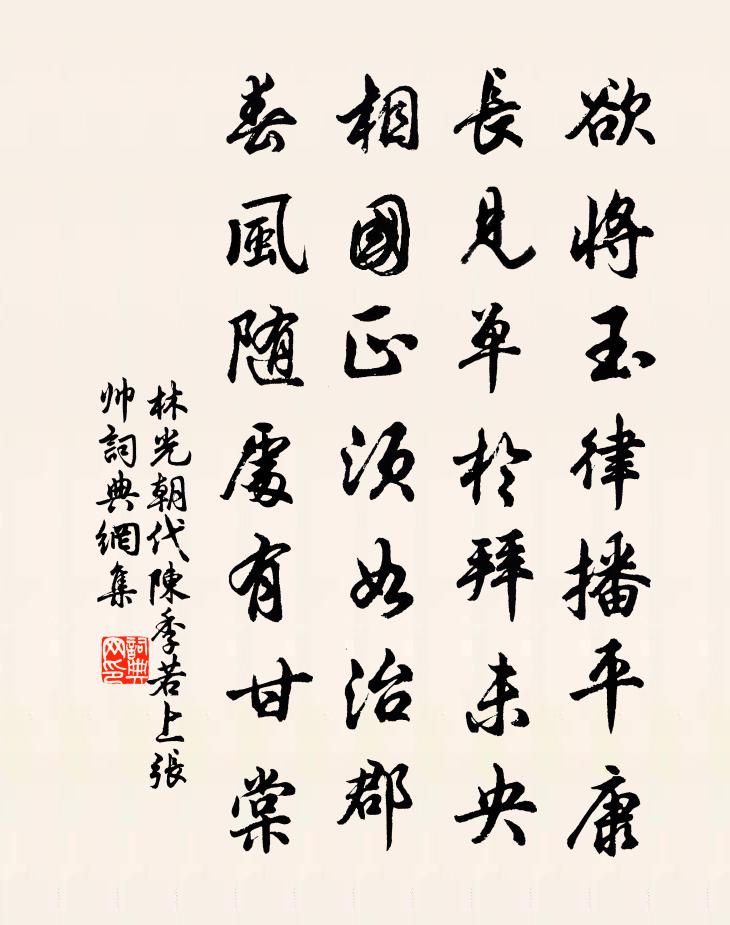 欲將玉律播平康
長見單於拜未央
相國正須如治郡
春風随處有甘棠
林光朝代陳季若上張
帅詞典網集
詞典网印